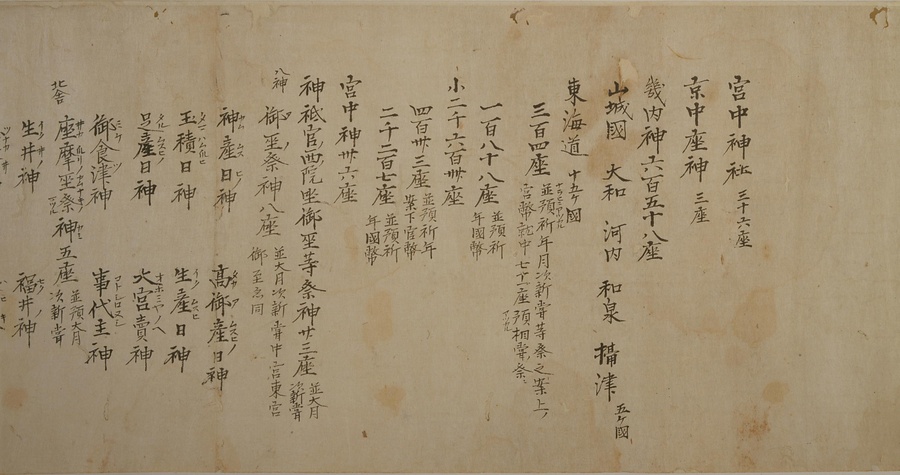 宮中神社 三十六座
京中座神 三座
畿内神六百五十八座
山城國 大和 河内 和泉 攝津 五ケ國
東海道 十五ケ國
三百四座 並預祈年月次新嘗等祭之案上
官幣就中七十一座預相嘗祭
一百八十八座 並預祈
年國幣
小二千六百卅座
四百卅三座 並預祈年
案下官幣
二千二百七座 並預祈
年國幣
宮中神卅六座
神祇官西院坐御巫等祭神廿三座 並大月
次新嘗
八神 御巫祭神八座 並大月次新嘗中宮東宮
御巫亦同
神産日神 高御産日神
玉積日神 生産日神
足産日神 大宮賣神
御食津神 事代主神
座摩巫祭神五座 並預大月
次新嘗
生井神 福井神